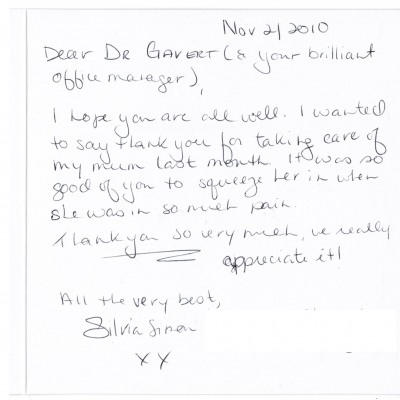 Nov 2/2010
Dear Dr Gavert (& your brilliant
office manager),
I hope you are all well. I wanted
to say thank you for taking care of
my mum last month. It was so
good of you to squeeze her in when
she was in so much pain.
Thank you so very much, we really
appreciate it!
All the very best,
Silvia Simon
xx